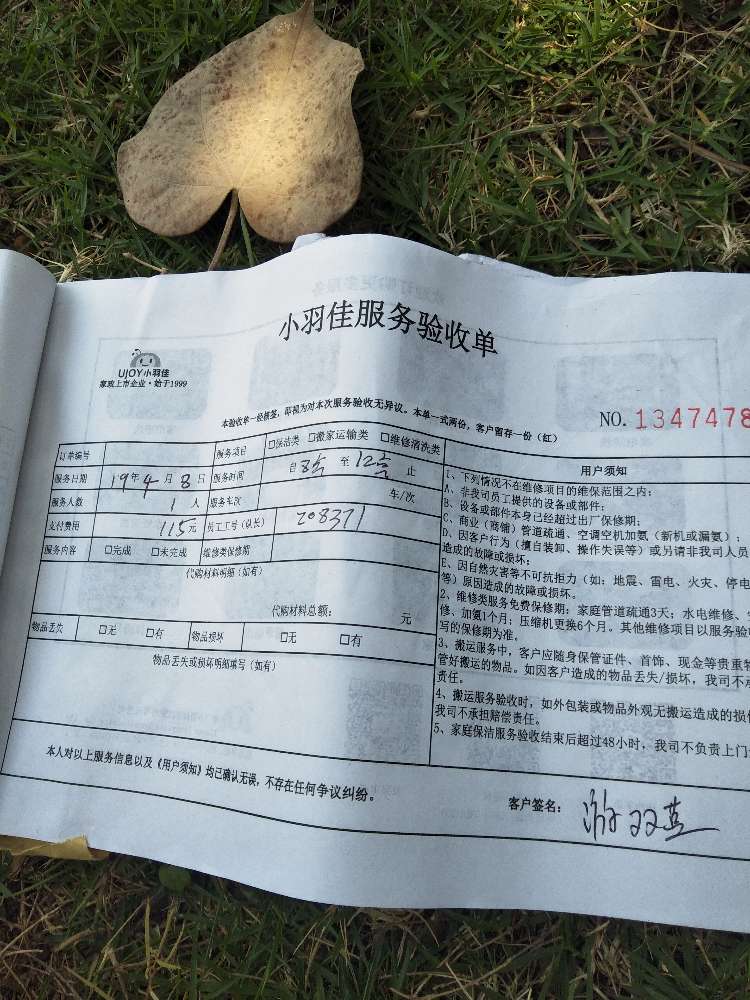 小羽佳服务验收单
UJOY小羽佳
家政上市企业·始于1999
本验收单一经核签，即视为对本次服务验收无异议。本单一式两份，客户留存一份（红）
NO. 1347478
订单编号 服务项目 □保洁类 □搬家运输类 □维修清洗类
服务日期 19年4月8日 服务时间 自8点至12点止
服务人数 1人 服务车次 车/次
支付费用 115元 员工工号（队长） 208371
服务内容 □完成 □未完成 维修类保修期
代购材料明细（如有）
代购材料总额： 元
物品丢失 □无 □有 物品损坏 □无 □有
物品丢失或损坏明细填写（如有）
用户须知
1、下列情况不在维修项目的维保范围之内：
A、非我司员工提供的设备或部件；
B、设备或部件本身已经超过出厂保修期；
C、商业（商铺）管道疏通、空调空机加氨（新机或漏氨）；
D、因客户行为（擅自装卸、操作失误等）或另请非我司人员
造成的故障或损坏；
E、因自然灾害等不可抗拒力（如：地震、雷电、火灾、停电
等）原因造成的故障或损坏。
2、维修类服务免费保修期：家庭管道疏通3天；水电维修、
修、加氨1个月；压缩机更换6个月。其他维修项目以服务验
写的保修期为准。
3、搬运服务中，客户应随身保管证件、首饰、现金等贵重
管好搬运的物品。如因客户造成的物品丢失/损坏，我司不承
责任。
4、搬运服务验收时，如外包装或物品外观无搬运造成的损
我司不承担赔偿责任。
5、家庭保洁服务验收结束后超过48小时，我司不负责上门
本人对以上服务信息以及《用户须知》均已确认无误，不存在任何争议纠纷。
客户签名：